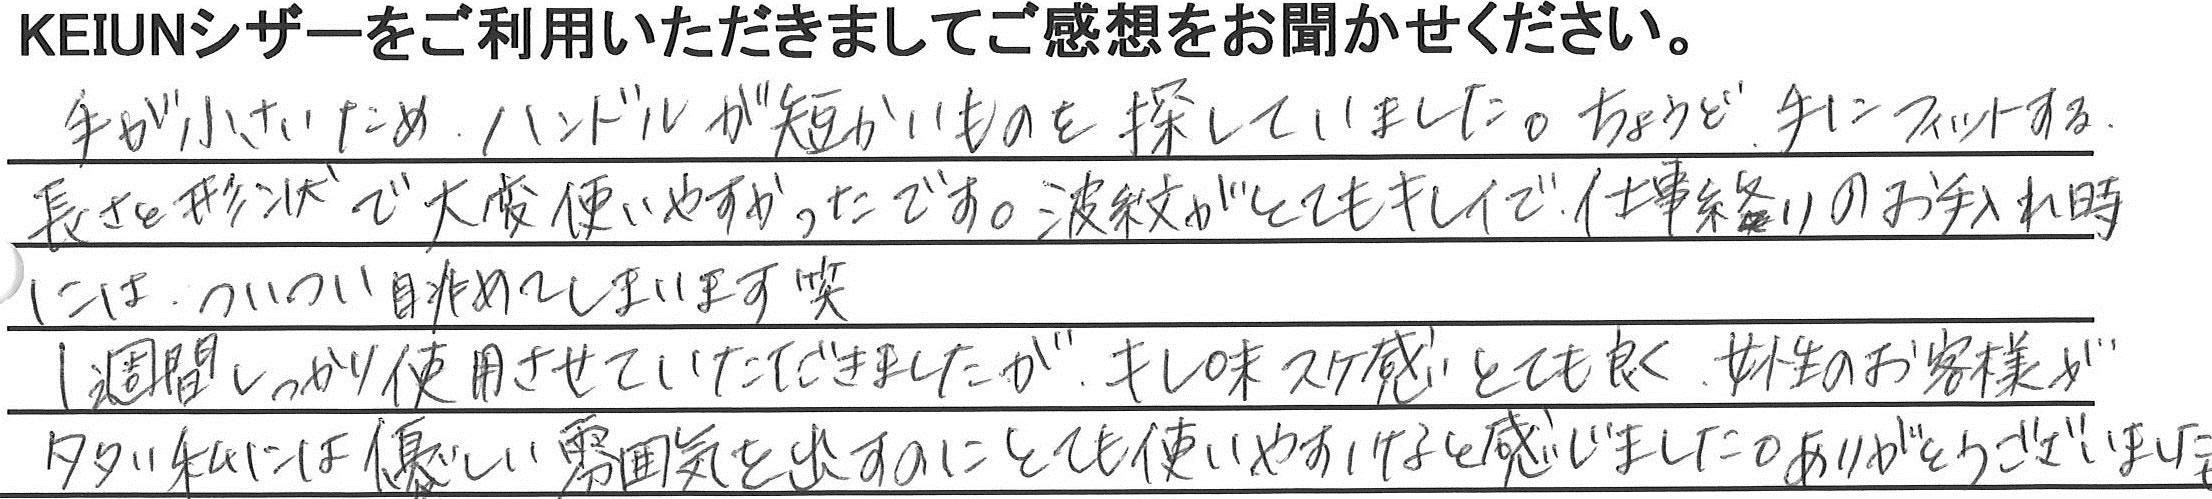 KEIUNシザーをご利用いただきましてご感想をお聞かせください。
手が小さいため、ハンドルが短かいものを探していました。ちょうど、手にフィットする、
長さと形状で大変使いやすかったです。波紋がとてもキレイで、仕事終りのお手入れ時
には、ついつい眺めてしまいます笑
1週間しっかり使用させていただきましたが、キレ味スケ感いとても良く、女性のお客様が
多い私には優しい雰囲気を出すのにとても使いやすいと感じました。ありがとうございました